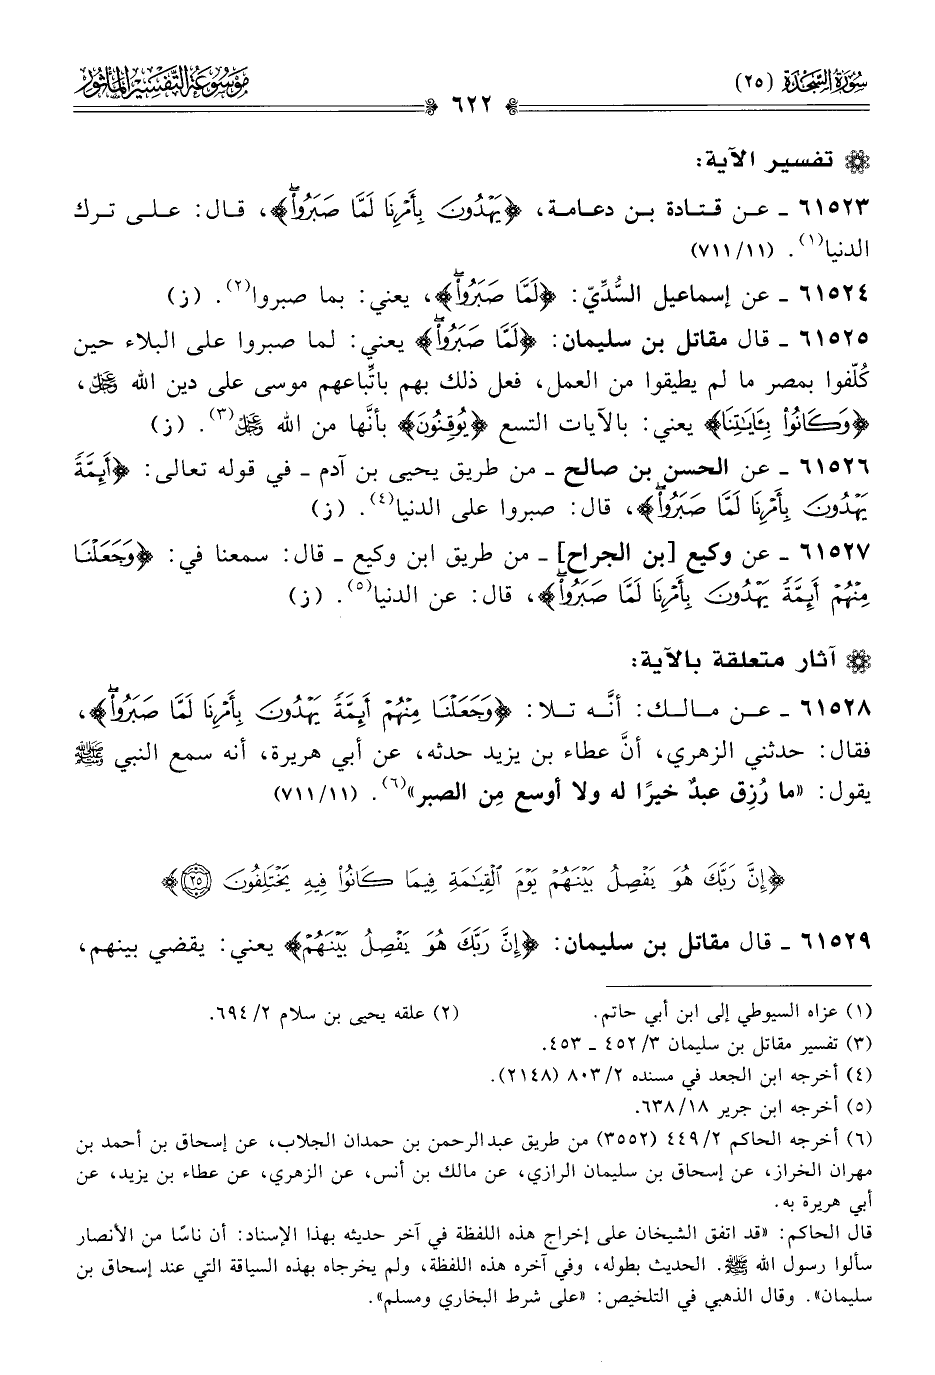 سورة السجدة (٢٥)
موسوعة التفسير المأثور
٦٢٢
تفسير الآية:
٦١٥٢٣ ـ عن قتادة بن دعامة، ﴿يَهْدُونَ بِأَمْرِنَا لَمَّا صَبَرُواْ﴾، قال: على ترك
الدنيا(١). (٧١١/١١)
٦١٥٢٤ ـ عن إسماعيل السُّدِّيّ: ﴿لَمَّا صَبَرُواْ﴾، يعني: بما صبروا(٢). (ز)
٦١٥٢٥ ـ قال مقاتل بن سليمان: ﴿لَمَّا صَبَرُواْ﴾ يعني: لما صبروا على البلاء حين
كُلّفوا بمصر ما لم يطيقوا من العمل، فعل ذلك بهم باتِّباعهم موسى على دين الله ﷿،
﴿وَكَانُواْ بِـَٔايَٰتِنَا﴾ يعني: بالآيات التسع ﴿يُوقِنُونَ﴾ بأنَّها من الله ﷿(٣). (ز)
٦١٥٢٦ ـ عن الحسن بن صالح ـ من طريق يحيى بن آدم ـ في قوله تعالى: ﴿أَئِمَّةً
يَهْدُونَ بِأَمْرِنَا لَمَّا صَبَرُواْ﴾، قال: صبروا على الدنيا(٤). (ز)
٦١٥٢٧ ـ عن وكيع [بن الجراح] ـ من طريق ابن وكيع ـ قال: سمعنا في: ﴿وَجَعَلْنَا
مِنْهُمْ أَئِمَّةً يَهْدُونَ بِأَمْرِنَا لَمَّا صَبَرُواْ﴾، قال: عن الدنيا(٥). (ز)
آثار متعلقة بالآية:
٦١٥٢٨ ـ عن مالك: أنَّه تلا: ﴿وَجَعَلْنَا مِنْهُمْ أَئِمَّةً يَهْدُونَ بِأَمْرِنَا لَمَّا صَبَرُواْ﴾،
فقال: حدثني الزهري، أنَّ عطاء بن يزيد حدثه، عن أبي هريرة، أنه سمع النبي ﷺ
يقول: «ما رُزِق عبدٌ خيرًا له ولا أوسع مِن الصبر»(٦). (٧١١/١١)
﴿إِنَّ رَبَّكَ هُوَ يَفْصِلُ بَيْنَهُمْ يَوْمَ ٱلْقِيَٰمَةِ فِيمَا كَانُواْ فِيهِ يَخْتَلِفُونَ ٢٥﴾
٦١٥٢٩ ـ قال مقاتل بن سليمان: ﴿إِنَّ رَبَّكَ هُوَ يَفْصِلُ بَيْنَهُمْ﴾ يعني: يقضي بينهم،
(١) عزاه السيوطي إلى ابن أبي حاتم.
(٢) علقه يحيى بن سلام ٢/ ٦٩٤.
(٣) تفسير مقاتل بن سليمان ٣/ ٤٥٢ ـ ٤٥٣.
(٤) أخرجه ابن الجعد في مسنده ٢/ ٨٠٣ (٢١٤٨).
(٥) أخرجه ابن جرير ١٨/ ٦٣٨.
(٦) أخرجه الحاكم ٢/ ٤٤٩ (٣٥٥٢) من طريق عبدالرحمن بن حمدان الجلاب، عن إسحاق بن أحمد بن
مهران الخراز، عن إسحاق بن سليمان الرازي، عن مالك بن أنس، عن الزهري، عن عطاء بن يزيد، عن
أبي هريرة به.
قال الحاكم: «قد اتفق الشيخان على إخراج هذه اللفظة في آخر حديثه بهذا الإسناد: أن ناسًا من الأنصار
سألوا رسول الله ﷺ. الحديث بطوله، وفي آخره هذه اللفظة، ولم يخرجاه بهذه السياقة التي عند إسحاق بن
سليمان». وقال الذهبي في التلخيص: «على شرط البخاري ومسلم».